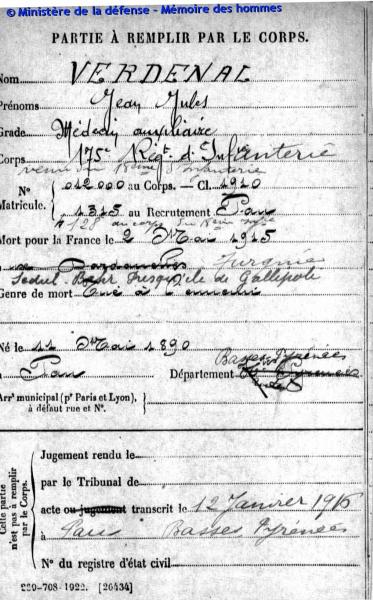 © Ministère de la défense - Mémoire des hommes
PARTIE À REMPLIR PAR LE CORPS.
Nom VERDENAL
Prénoms Jean Jules
Grade Médecin auxiliaire
Corps 175e Régt d'Infanterie
venu du 18ème d'Infanterie
N° 012000 au Corps. — Cl. 1910
Matricule. 1315 au Recrutement Pau
au corps du
Mort pour la France le 2 Mai 1915
à Dardanelles Turquie
Sedul-Bahr Presqu'ile de Gallipoli
Genre de mort Tué à l'ennemi
Né le 11 Mai 1890
Basses Pyrénées
à Pau Département Htes Pyrénées
Arrt municipal (pr Paris et Lyon),
à défaut rue et N°.
Cette partie
n'est pas à remplir
par le Corps.
Jugement rendu le
par le Tribunal de
acte ou jugement transcrit le 12 Janvier 1916
à Pau Basses Pyrénées
N° du registre d'état civil
220-708-1922. [26434]